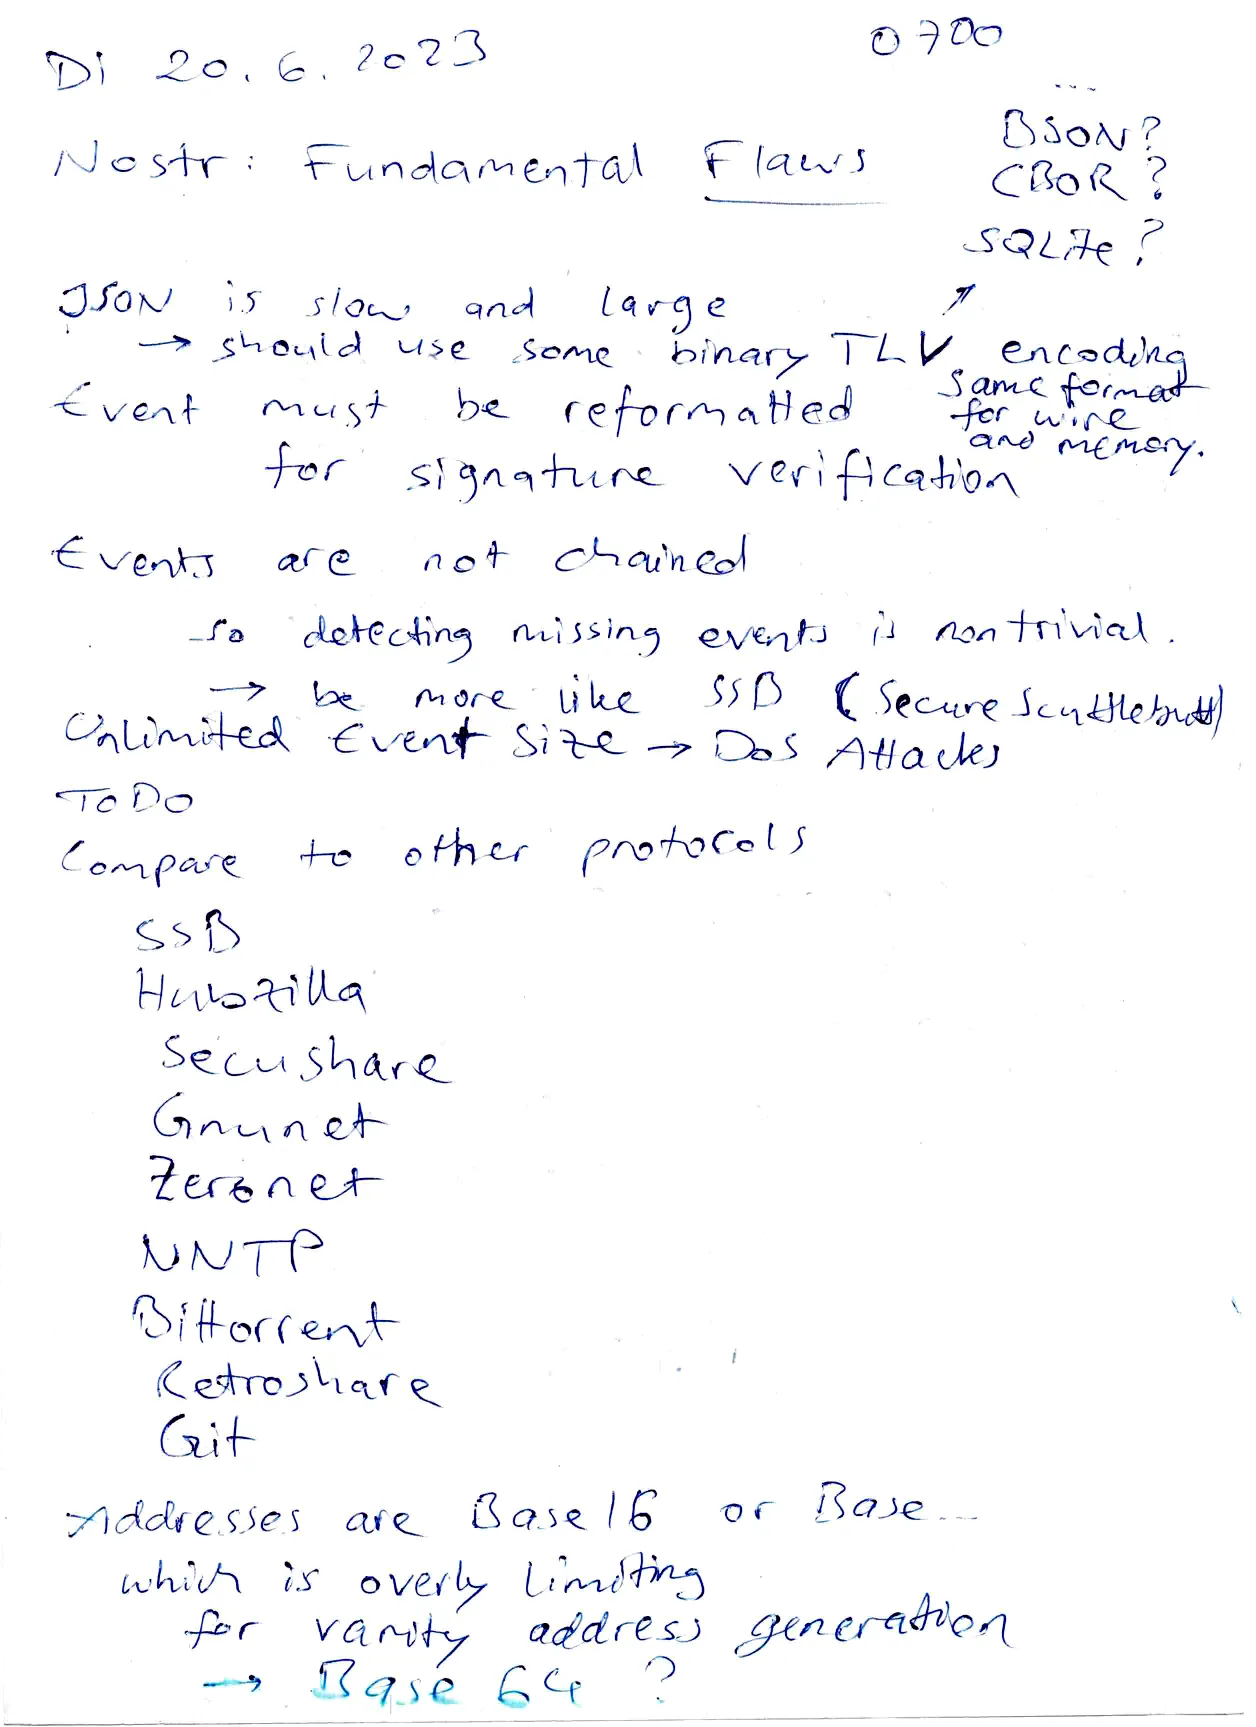 Di 20.6.2023
0700
...
BSON?
CBOR?
SQLite?
Nostr: Fundamental Flaws
JSON is slow and large
→ should use some binary TLV encoding
same format
for wire
and memory.
Event must be reformatted
for signature verification
Events are not chained
so detecting missing events is nontrivial.
→ be more like SSB (Secure Scuttlebutt)
Unlimited Event Size → DoS Attacks
ToDo
Compare to other protocols
SSB
Hubzilla
Secushare
Gnunet
Zeronet
NNTP
Bittorrent
Retroshare
Git
Addresses are Base16 or Base...
which is overly limiting
for vanity address generation
→ Base 64 ?